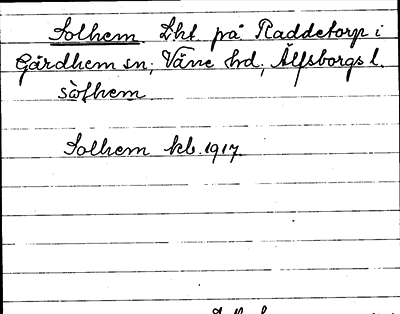 Solhem Lht på Raddetorp i
Gärdhem sn; Väne hd; Älfsborgs l.
sòłhem
Solhem kb. 1917.